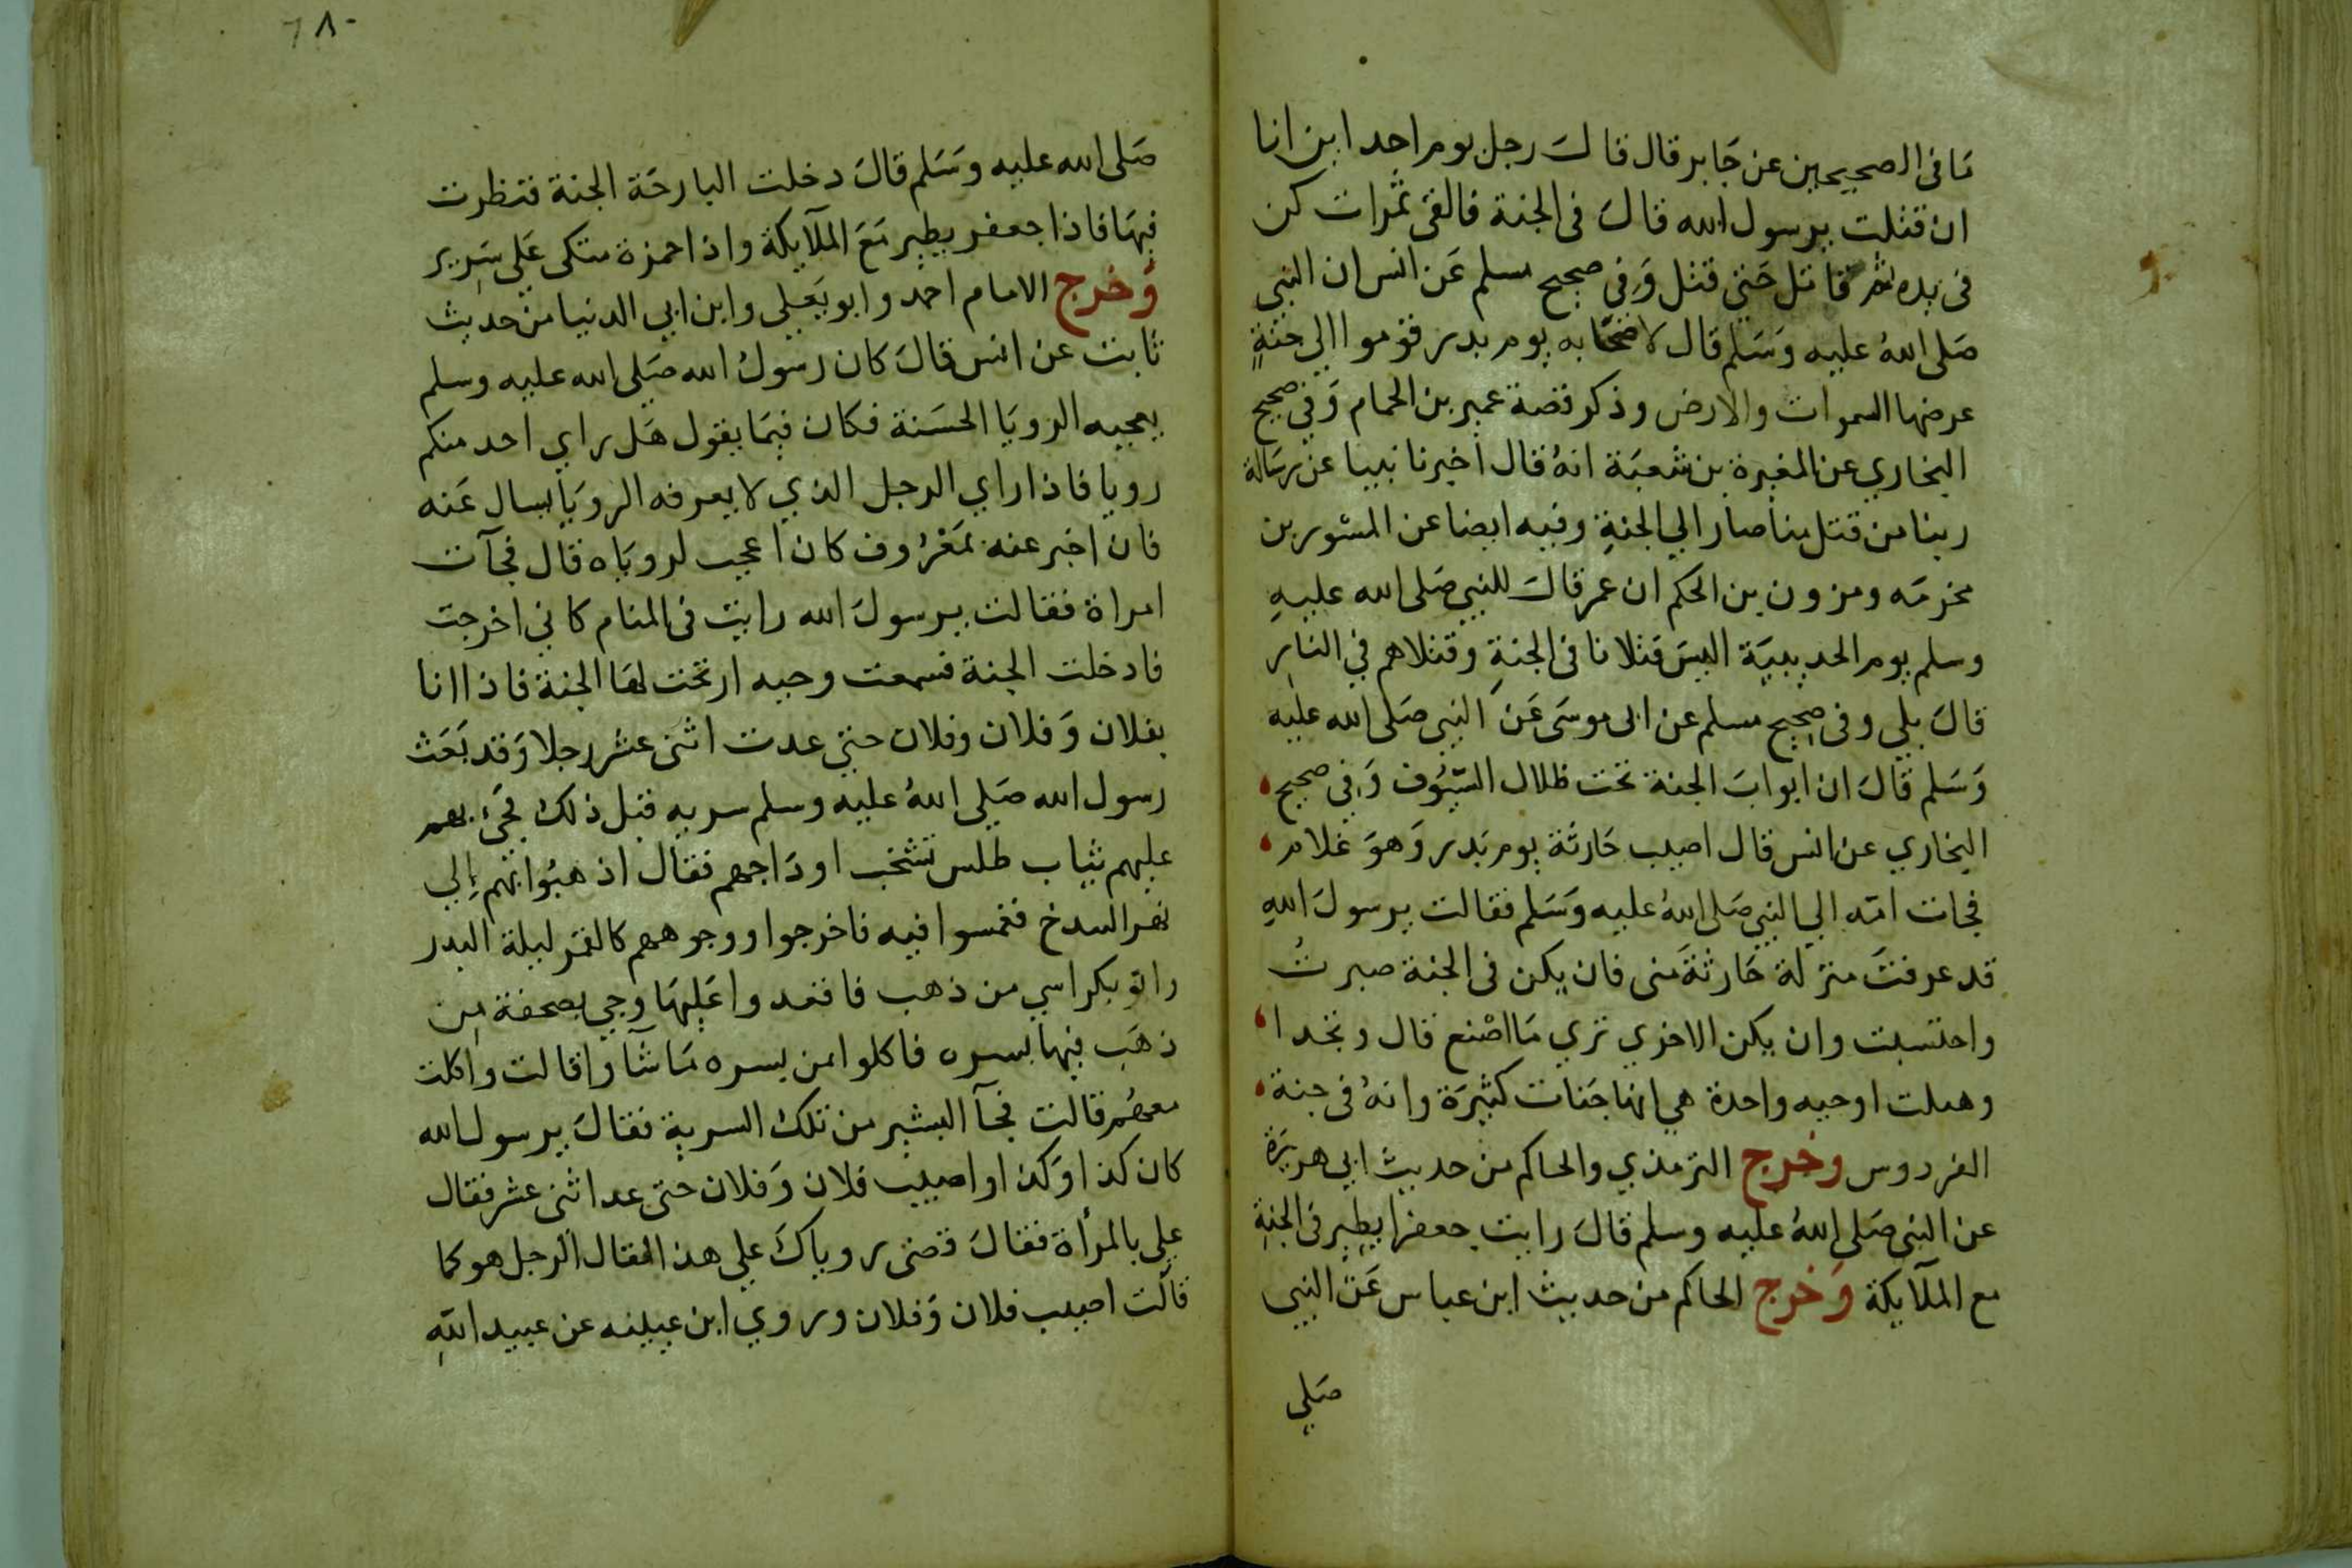 مَا فى الصحيحين عن جَابر قال قالَ رجل يوم احد اين انا
ان قتلت يرسول الله قالَ فى الجنة فالقى تمرات كن
فى يده ثم قاتل حَتي قتل وَفِي صحيح مسلم عَن انس ان النبي
صَلى اللهُ عليه وَسَلم قال لاصحَابه يوم بدر قوموا الي جنةٍ
عرضها السموات والارض وذكر قصة عمير بن الحمام وَفي صحيح
البخاري عن المغيرة بن شعبَة انهُ قال اخبرنا نبينا عن رسَالة
ربنا من قتل منا صار الي الجنةِ وفيه ايضا عن المسور بن
مخرمَه ومرون بن الحكم ان عمر قالَ للنبي صَلى الله عليهِ
وسلم يوم الحديبيَة اليسَ قتلانا فى الجنةِ وقتلاهم في النارِ
قالَ بلي وفى صحيح مسلم عن ابى موسَى عَن النبي صَلى الله عليه
وَسَلم قالَ ان ابوابَ الجنة تحت ظلال السّيُوف وَفِي صحيح
البخاري عن انس قال اصيب حَارثَة يوم بَدر وَهوَ غلام
فجات امّه الي النبي صَلى اللهُ عليه وَسَلم فقالت يرسولَ اللهِ
قد عرفتَ منزلة حَارثةَ مَنى فان يكن فى الجنة صبرتُ
واحتسبت وان يكن الاخري تري مَا اصْنع قال ويحد ا
وهبلت اوجبه واحدة هي انها جَنات كثيرَة وانهُ فى جنة
الفردوس وخرج الترمذي والحاكم من حديث ابي هريرَة
عن النبي صَلى اللهُ عليه وسلم قالَ رايت جعفرا يطِير فى الجنةِ
مع الملآيكة وَخرج الحاكم من حديث ابن عباس عَن النبي
صَلي
٦٨٠
صَلى الله عليه وَسَلم قالَ دخلت البارحَة الجنة فنظرت
فيهَا فاذا جعفر يطير مَعَ الملآيكة واذا حمزة متكى عَلي سَرِير
وَخرج الامام احمد وابو يَعلي وابن ابي الدنيا من حديث
ثابت عن انس قالَ كان رسولُ الله صَلى الله عليه وسلم
يعجبه الرويَا الحسَنة فكان فيمَا يقول هَل راي احد منكم
رويا فاذا راي الرجل الذي لا يعرفه الرويَا يسال عَنه
فان اخبر عنه بمَعْرُوف كان اعجب لروياه قال فجآت
امراة فقالت يرسولَ الله رايت فى المنام كاني اخرجت
فادخلت الجنة فسمعت وجبه ارتجت لها الجنة فاذا انا
بفلان وَفلان وفلان حتي عدت اثنى عشر رجلا وَقد بَعَث
رسول الله صَلي اللهُ عليه وسلم سريه قبل ذلك فجئ بهم
عليهم ثياب طلس تشخب اودَاجهم فقال اذهبُوا بهم إلي
نهر السدخ فغمسوا فيه فاخرجوا ووجوههم كالقمَر ليلة البدر
واتو بكراسي من ذهب فاقعدوا عَليهَا وجي بصحفة مِن
ذهَب فيها بسره فاكلوا من بسره مَا شآوا قالت واكلت
معهُم قالت فجآ البشير من تلك السرية فقالَ يرسول الله
كان كذا وَكذا واصيب فلان وَفلان حتى عد اثنى عشر فقال
علي بالمرأة فقالَ قصى روياكَ علي هذا فقال الرجل هو كما
قالت اصيب فلان وَفلان وروي ابن عيينه عن عبيد اللهِ